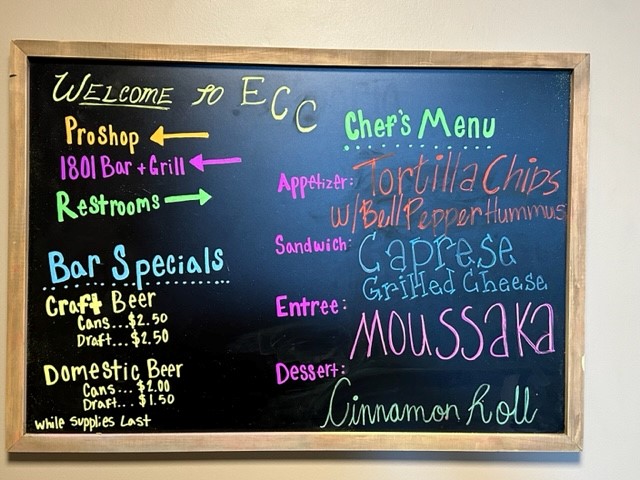 Welcome to ECC
Pro Shop ←
1801 Bar + Grill ←
Restrooms →
Bar Specials
Craft Beer
Cans...$2.50
Draft...$2.50
Domestic Beer
Cans...$2.00
Draft...$1.50
While Supplies Last
Chef's Menu
Appetizer: Tortilla Chips
w/Bell Pepper Hummus
Sandwich: Caprese
Grilled Cheese
Entree: Moussaka
Dessert:
Cinnamon Roll